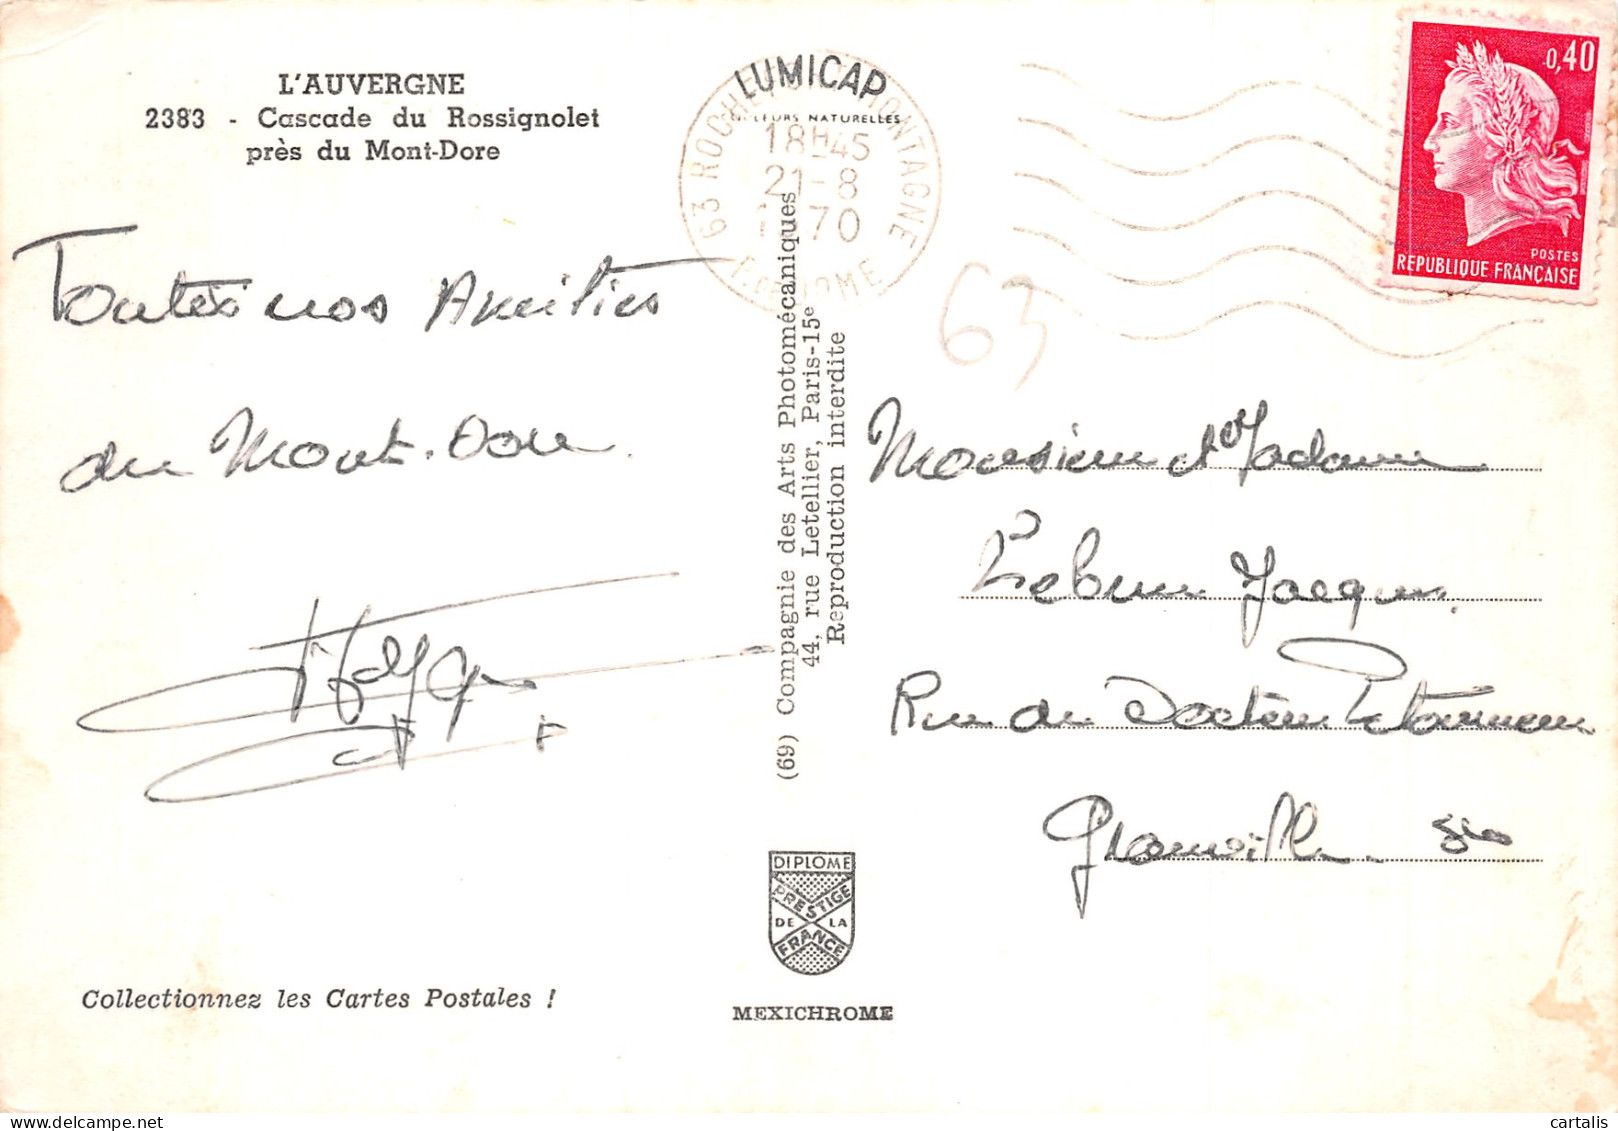 L'AUVERGNE
2383 - Cascade du Rossignolet
près du Mont-Dore
LUMICAP
COULEURS NATURELLES
63 ROCHEFORT MONTAGNE
18H45
21-8
1970
P. DE DOME
0,40
POSTES
REPUBLIQUE FRANÇAISE
63
Toutes nos Amitiés
du Mont-Dore.
(69) Compagnie des Arts Photomécaniques
44, rue Letellier, Paris-15e
Reproduction interdite
Monsieur et Madame
Lebrun Jacques.
Rue du Docteur Letourneur
Granville. 50
DIPLOME
PRESTIGE
DE LA
FRANCE
MEXICHROME
Collectionnez les Cartes Postales !
cartalis